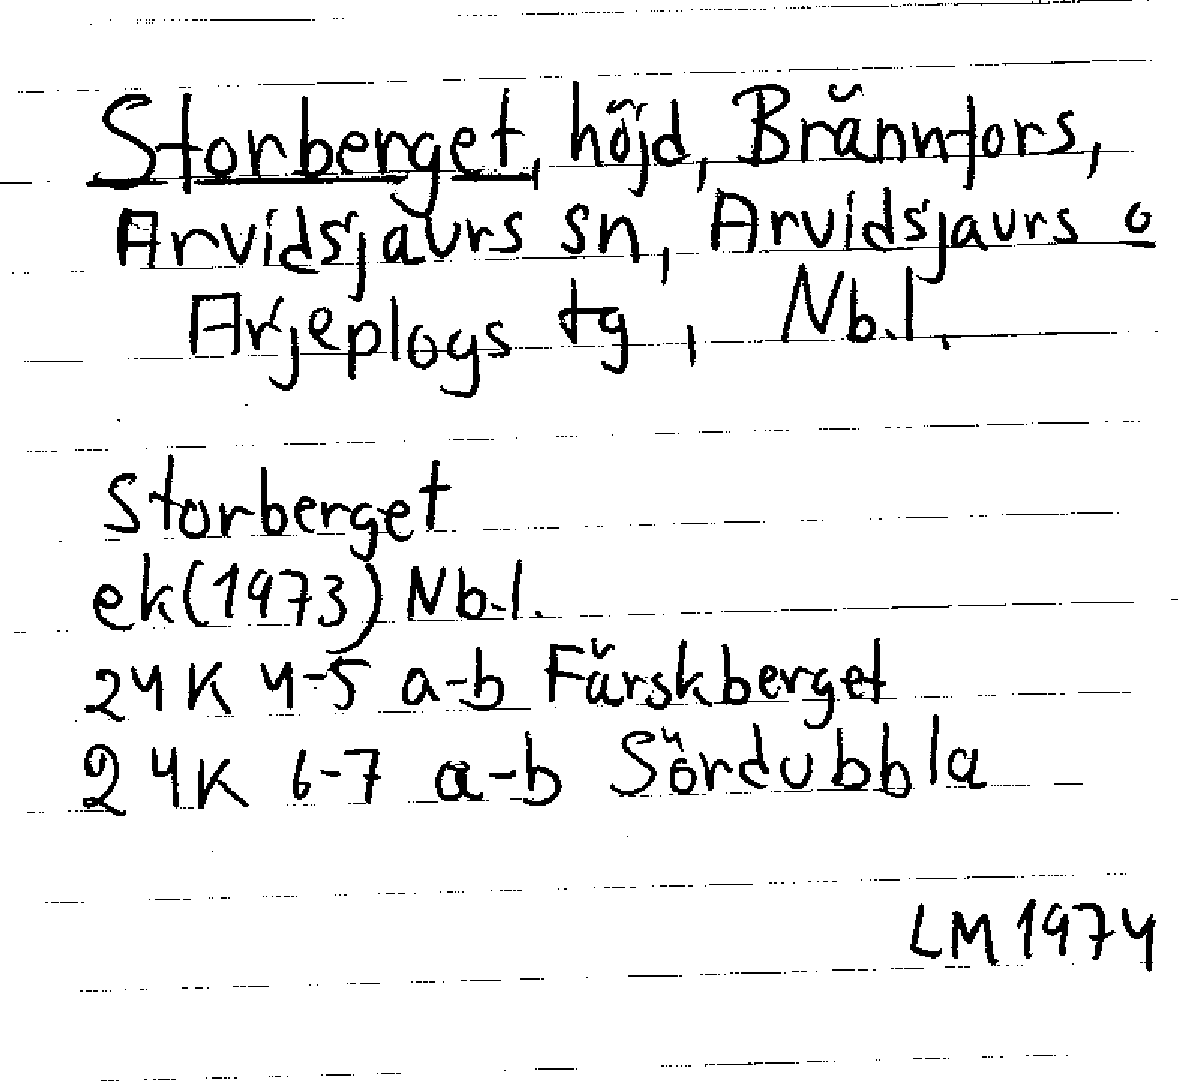 Storberget, höjd, Brännfors,
Arvidsjaurs sn, Arvidsjaurs o
Arjeplogs tg, Nb.l.
Storberget
ek(1973) Nb.l.
24K 4-5 a-b Färskberget
24K 6-7 a-b Sördubbla
LM 1974